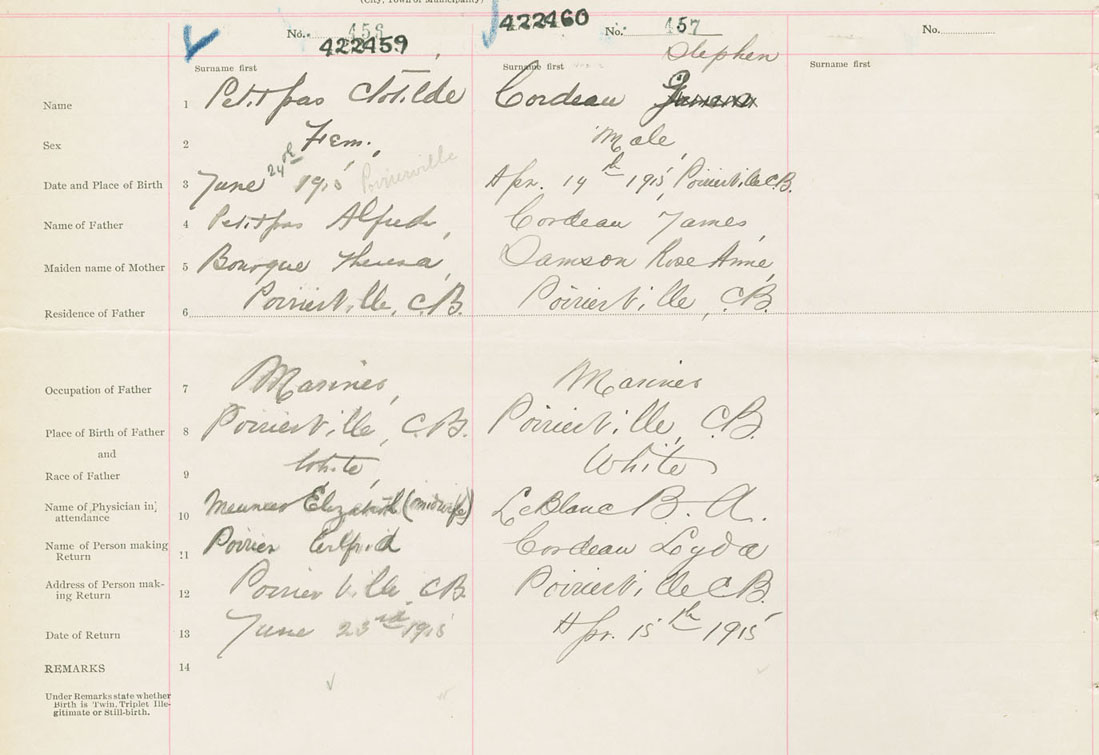 (City, Town or Municipality)
No. 458 422459 422460 No. 457 No.
Stephen
Surname first Surname first Surname first
Name 1 Petitpas Clotilde Cordeau
Sex 2 Fem., Male,
Date and Place of Birth 3 June 24th 1915 Poirierville Apr. 14th 1915, Poirierville C.B.
Name of Father 4 Petitpas Alfred, Cordeau James,
Maiden name of Mother 5 Bourque Theresa, Samson Rose Anne,
Residence of Father 6 Poirierville, C.B. Poirierville, C.B.
Occupation of Father 7 Mariner, Mariner
Place of Birth of Father 8 Poirierville, C.B. Poirierville, C.B.
and
Race of Father 9 White, White
Name of Physician in attendance 10 Elizabeth (midwife) LeBlanc B. A.
Name of Person making Return 11 Poirier Wilfrid Cordeau Lyda
Address of Person making Return 12 Poirierville, C.B. Poirierville C.B.
Date of Return 13 June 23rd 1915 Apr. 15th 1915
REMARKS 14
Under Remarks state whether
Birth is Twin, Triplet Ille-
gitimate or Still-birth.